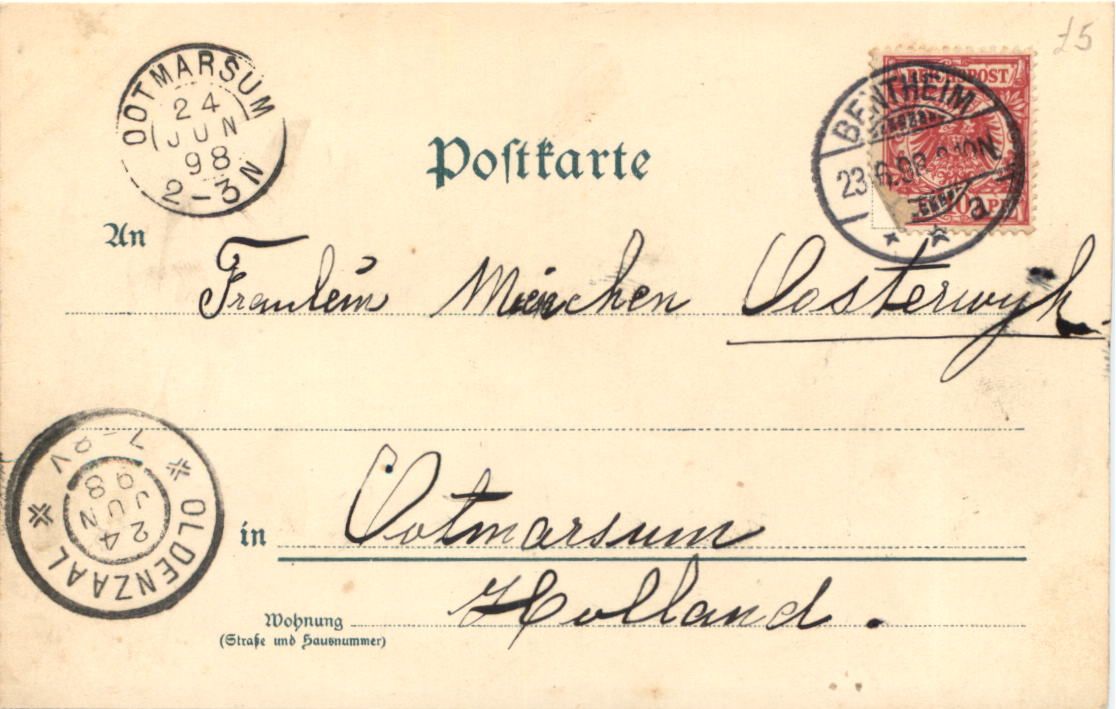 £5
OOTMARSUM
24
JUN
98
2-3N
REICHSPOST
BENTHEIM
23.6.98
10N
a
10 PF
Postkarte
An
Fraulein Mienchen Oosterwyk
OLDENZAAL
7-8V
24
JUN
98
in Ootmarsum
Holland.
Wohnung
(Straße und Hausnummer)